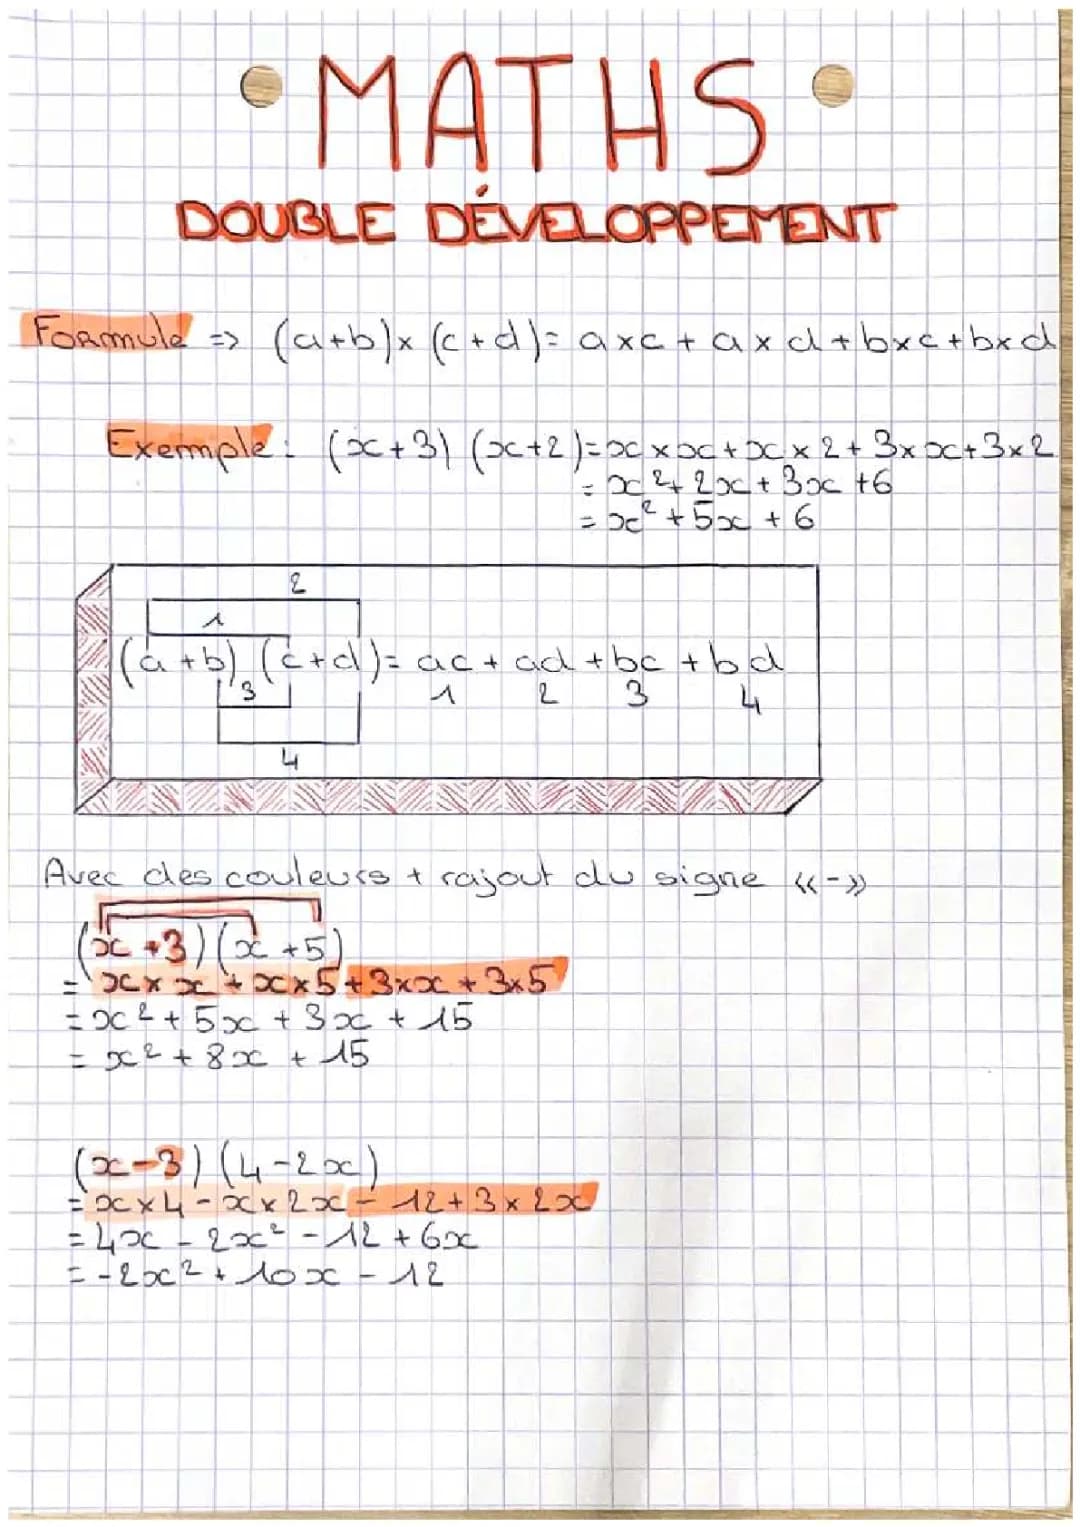 MATHS
DOUBLE DÉVELOPPEMENT
Formule => (a+b)x (c+d)= axc + axd+bxc+bxd
Exemple : (x+3) (x+2)=x×x+x×2+3×x+3×2
= x²+2x+3x+6
= x²+5x+6
2
1
(a+b) (c+d)= ac + ad + bc + bd
3 1 2 3 4
4
Avec des couleurs + rajout du signe «-»
(x+3)(x+5)
= x×x+x×5+3×x+3×5
=x²+5x+3x+15
= x²+8x+15
(x-3)(4-2x)
=x×4-x×2x-12+3×2x
=4x-2x²-12+6x
=-2x²+10x-12